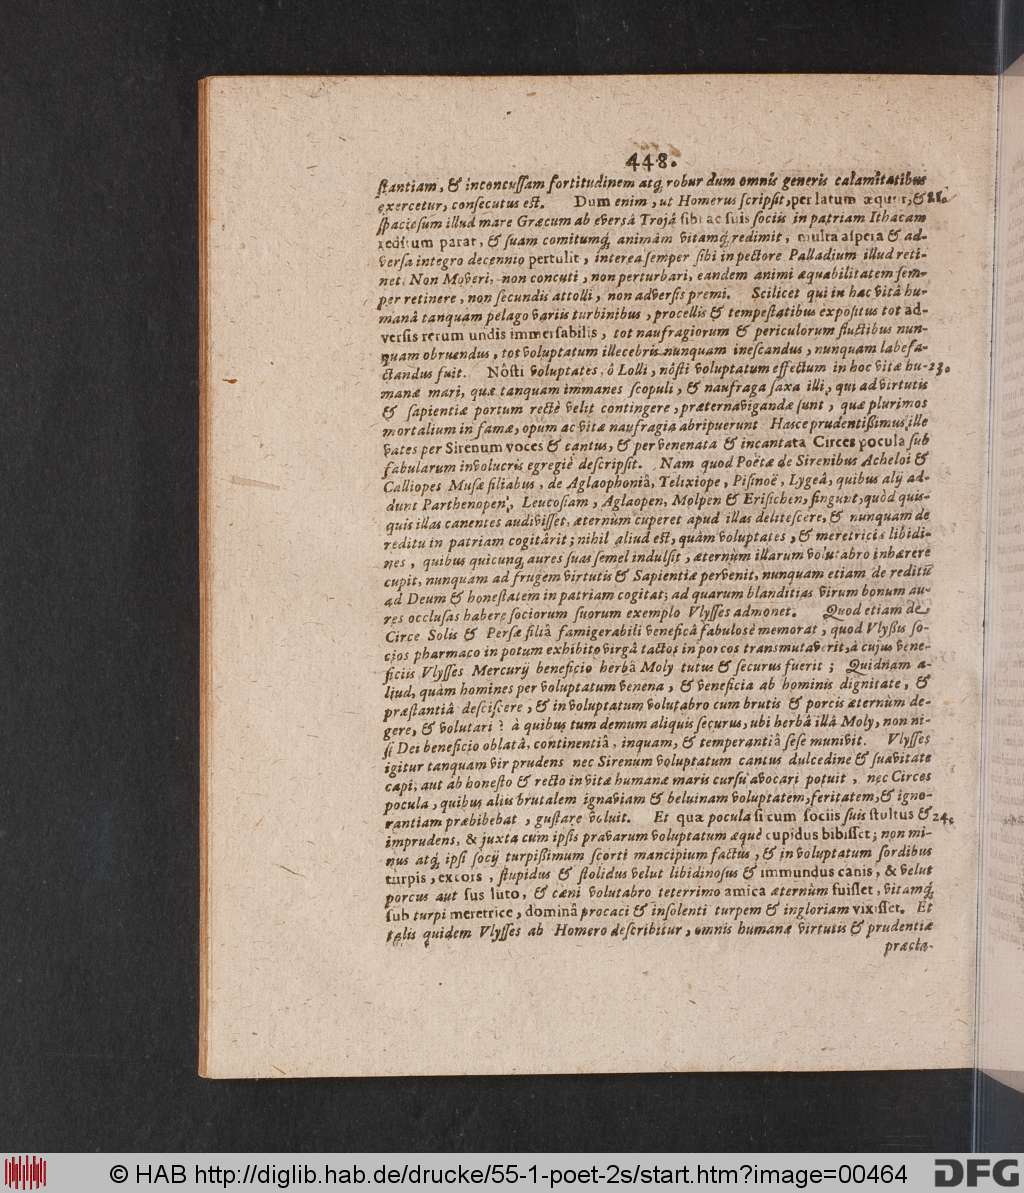 448.
stantiam, & inconcussam fortitudinem atq́ robur dum omnis generis calamitatibus
exercetur, consecutus est. Dum enim, ut Homerus scripsit, per latum æquor, & 22.
spaciosum illud mare Græcum ab eversâ Trojâ sibi ac suis sociis in patriam Ithacam
reditum parat, & suam comitumq́, animam vitamq́ redimit, multa aspera & ad-
versa integro decennio pertulit, interea semper sibi in pectore Palladium illud reti-
net. Non Moveri, non concuti, non perturbari, eandem animi æquabilitatem sem-
per retinere, non secundis attolli, non adversis premi. Scilicet qui in hac vitâ hu-
manâ tanquam pelago variis turbinibus, procellis & tempestatibus expositus tot ad-
versis rerum undis immersabilis, tot naufragiorum & periculorum fluctibus nun-
quam obruendus, tot voluptatum illecebris nunquam inescandus, nunquam labefa-
ctandus fuit. Nôsti voluptates, ô Lolli, nôsti voluptatum effectum in hoc vitæ hu- 23.
manæ mari, quæ tanquam immanes scopuli, & naufraga saxa illi, qui ad virtutis
& sapientiæ portum rectè velit contingere, præternavigandæ sunt, quæ plurimos
mortalium in famæ, opum ac vitæ naufragia abripuerunt Hasce prudentißimus ille
vates per Sirenum voces & cantus, & per venenata & incantata Circes pocula sub
fabularum involucris egregiè descripsit. Nam quod Poëtæ de Sirenibus Acheloi &
Calliopes Musæ filiabus, de Aglaophoniâ, Telixiope, Pisinoë, Lygeâ, quibus alij ad-
dunt Parthenopen, Leucosiam, Aglaopen, Molpen & Erisichen, fingunt, quòd quis-
quis illas canentes audivisset, æternùm cuperet apud illas delitescere, & nunquam de
reditu in patriam cogitârit; nihil aliud est, quàm voluptates, & meretricis libidi-
nes, quibus quicunq́ aures suas semel indulsit, æternùm illarum volutabro inhærere
cupit, nunquam ad frugem virtutis & Sapientiæ pervenit, nunquam etiam de reditũ
ad Deum & honestatem in patriam cogitat; ad quarum blanditias virum bonum au-
res occlusas habere sociorum suorum exemplo Ulysses admonet. Quod etiam de
Circe Solis & Persæ filiâ famigerabili veneficâ fabulosè memorat, quod Ulyßis so-
cios pharmaco in potum exhibito virgâ tactos in porcos transmutaverit, à cujus vene-
ficiis Ulysses Mercurij beneficio herbâ Moly tutus & securus fuerit; Quidnam a-
liud, quàm homines per voluptatum venena, & veneficia ab hominis dignitate, &
præstantiâ desciscere, & in voluptatum volutabro cum brutis & porcis æternùm de-
gere, & volutari? à quibus tum demum aliquis securus, ubi herbâ illâ Moly, non ni-
si Dei beneficio oblatâ, continentiâ, inquam, & temperantiâ sese munivit. Ulysses
igitur tanquam vir prudens nec Sirenum voluptatum cantus dulcedine & suavitate
capi, aut ab honesto & recto in vitæ humanæ maris cursu avocari potuit, nec Circes
pocula, quibus aliis brutalem ignaviam & beluinam voluptatem, feritatem, & igno-
rantiam præbibebat, gustare voluit. Et quæ pocula si cum sociis suis stultus & 24.
imprudens, & juxta cum ipsis pravarum voluptatum æquè cupidus bibisset; non mi-
nus atq́ ipsi socij turpißimum scorti mancipium factus, & in voluptatum sordibus
turpis, excors, stupidus & stolidus velut libidinosus & immundus canis, & velut
porcus aut sus luto, & cæni volutabro teterrimo amica æternùm fuisset, vitamq́
sub turpi meretrice, dominâ procaci & insolenti turpem & ingloriam vixisset. Et
talis quidem Ulysses ab Homero describitur, omnis humanæ virtutis & prudentiæ
præcla-
© HAB http://diglib.hab.de/drucke/55-1-poet-2s/start.htm?image=00464
DFG